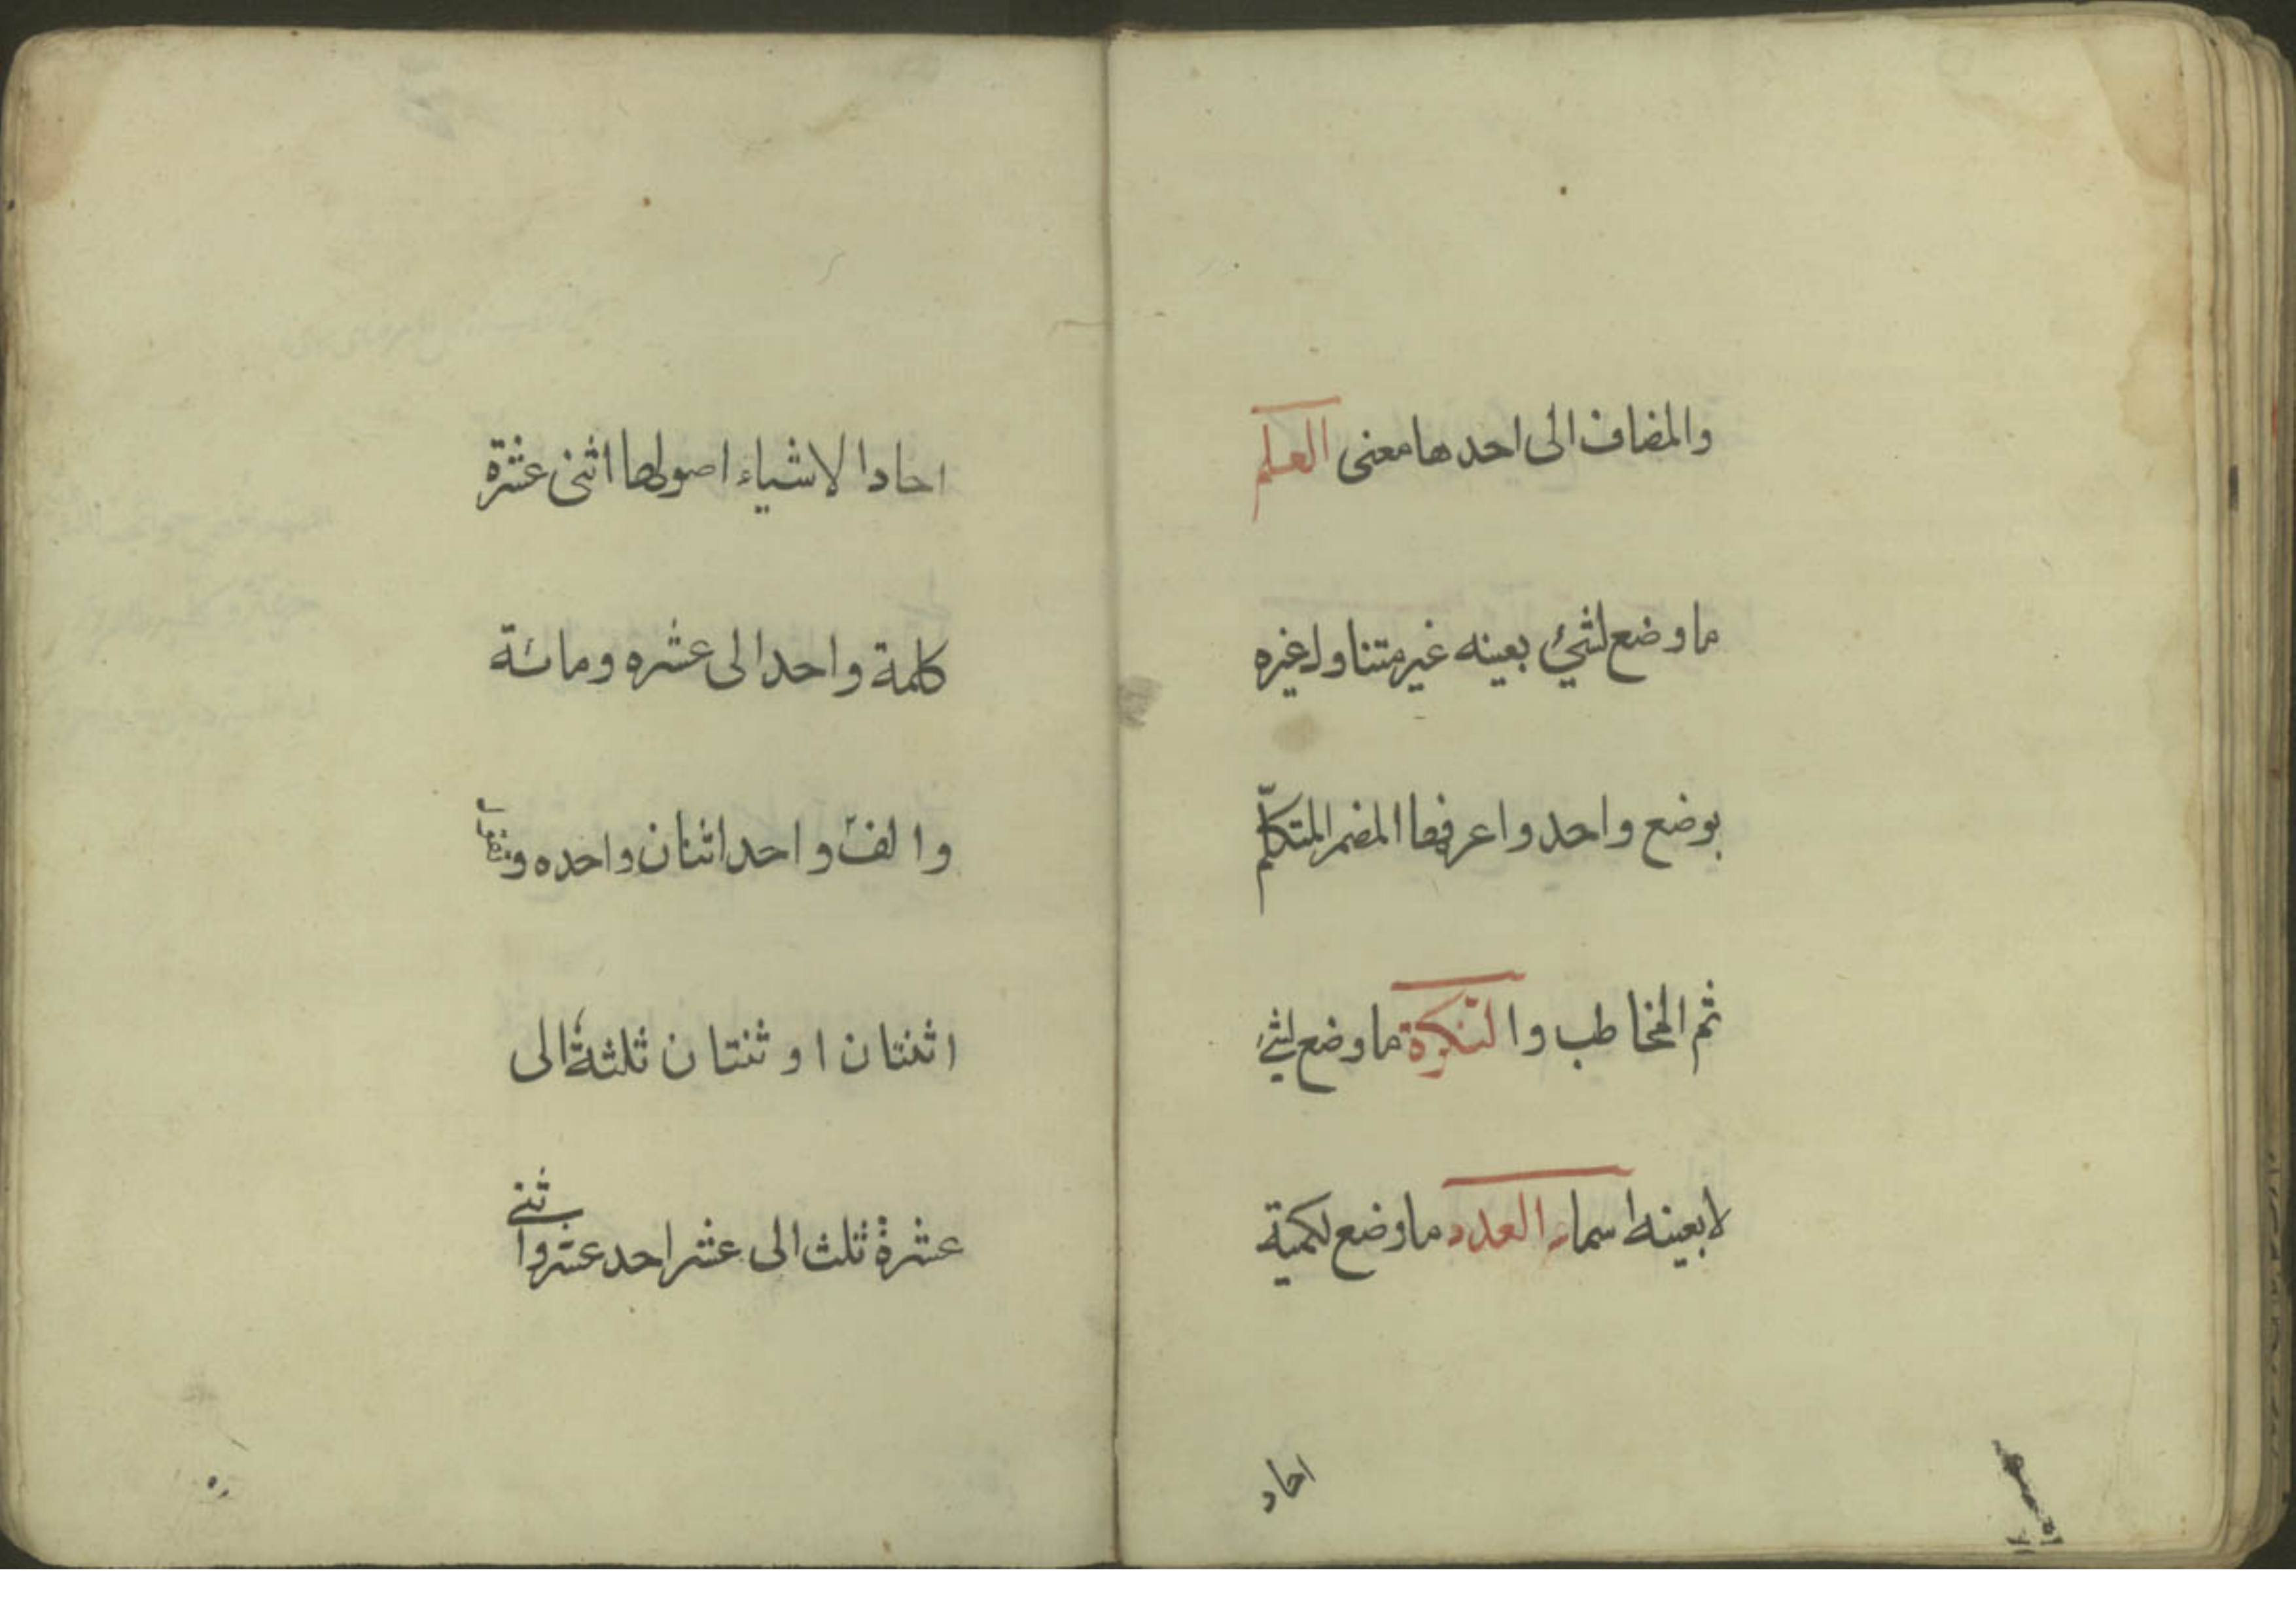 والمضاف الى احدها معنى العلم
ما وضع لشئ بعينه غير متناول غيره
بوضع واحد واعرفها المضمر المتكلّم
ثم المخاطب والنكرة ما وضع لشئ
لا بعينه اسماء العدد ما وضع لكمية
احاد
احاد الاشياء اصولها اثنى عشرة
كلمة واحد الى عشره ومائة
والف واحد اثنان واحده
اثنتان او ثنتان ثلثة الى
عشرة ثلث الى عشر احد عشر واثنى